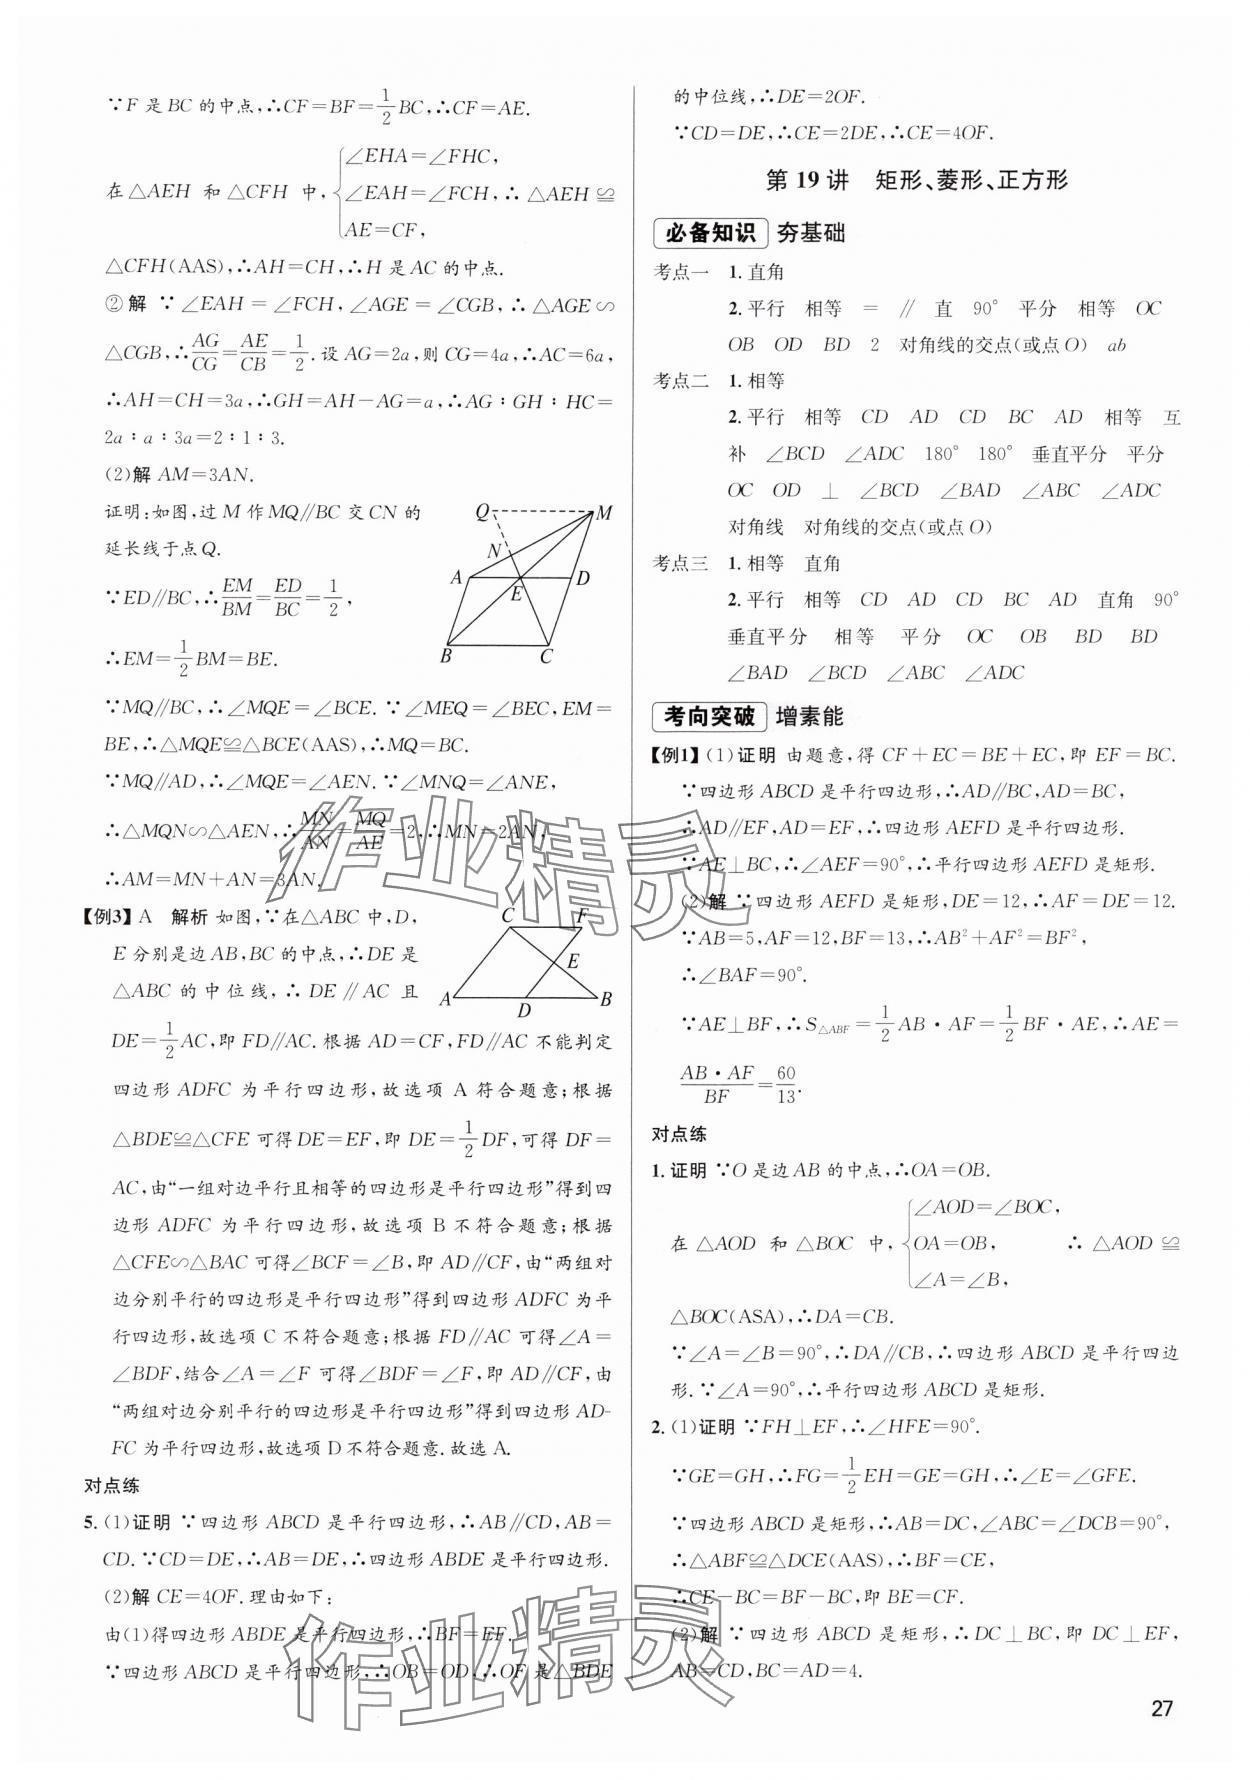 ∵F 是 BC 的中点,∴CF=BF=1/2BC,∴CF=AE.
在△AEH 和△CFH 中,{∠EHA=∠FHC,
∠EAH=∠FCH,∴△AEH≌
AE=CF,
△CFH(AAS),∴AH=CH,∴H 是 AC 的中点.
②解 ∵∠EAH=∠FCH,∠AGE=∠CGB,∴△AGE∽
△CGB,∴AG/CG=AE/CB=1/2.设 AG=2a,则 CG=4a,∴AC=6a,
∴AH=CH=3a,∴GH=AH-AG=a,∴AG∶GH∶HC=
2a∶a∶3a=2∶1∶3.
(2)解 AM=3AN.
证明:如图,过 M 作 MQ∥BC 交 CN 的
延长线于点 Q.
∵ED∥BC,∴EM/BM=ED/BC=1/2,
∴EM=1/2BM=BE.
Q M N A D E B C
∵MQ∥BC,∴∠MQE=∠BCE.∵∠MEQ=∠BEC,EM=
BE,∴△MQE≌△BCE(AAS),∴MQ=BC.
∵MQ∥AD,∴∠MQE=∠AEN.∵∠MNQ=∠ANE,
∴△MQN∽△AEN,∴MN/AN=MQ/AE=2,∴MN=2AN,
∴AM=MN+AN=3AN.
【例3】A 解析 如图,∵在△ABC 中,D,
E 分别是边 AB,BC 的中点,∴DE 是
△ABC 的中位线,∴DE∥AC 且
C F E A D B
DE=1/2AC,即 FD∥AC.根据 AD=CF,FD∥AC 不能判定
四边形 ADFC 为平行四边形,故选项 A 符合题意;根据
△BDE≌△CFE 可得 DE=EF,即 DE=1/2DF,可得 DF=
AC,由“一组对边平行且相等的四边形是平行四边形”得到四
边形 ADFC 为平行四边形,故选项 B 不符合题意;根据
△CFE∽△BAC 可得∠BCF=∠B,即 AD∥CF,由“两组对
边分别平行的四边形是平行四边形”得到四边形 ADFC 为平
行四边形,故选项 C 不符合题意;根据 FD∥AC 可得∠A=
∠BDF,结合∠A=∠F 可得∠BDF=∠F,即 AD∥CF,由
“两组对边分别平行的四边形是平行四边形”得到四边形 AD-
FC 为平行四边形,故选项 D 不符合题意.故选 A.
对点练
5.(1)证明 ∵四边形 ABCD 是平行四边形,∴AB∥CD,AB=
CD.∵CD=DE,∴AB=DE,∴四边形 ABDE 是平行四边形.
(2)解 CE=4OF.理由如下:
由(1)得四边形 ABDE 是平行四边形,∴BF=EF.
∵四边形 ABCD 是平行四边形,∴OB=OD,∴OF 是△BDE
的中位线,∴DE=2OF.
∵CD=DE,∴CE=2DE,∴CE=4OF.
第 19 讲 矩形、菱形、正方形
必备知识 夯基础
考点一 1.直角
2.平行 相等 = ∥ 直 90° 平分 相等 OC
OB OD BD 2 对角线的交点(或点 O) ab
考点二 1.相等
2.平行 相等 CD AD CD BC AD 相等 互
补 ∠BCD ∠ADC 180° 180° 垂直平分 平分
OC OD ⊥ ∠BCD ∠BAD ∠ABC ∠ADC
对角线 对角线的交点(或点 O)
考点三 1.相等 直角
2.平行 相等 CD AD CD BC AD 直角 90°
垂直平分 相等 平分 OC OB BD BD
∠BAD ∠BCD ∠ABC ∠ADC
考向突破 增素能
【例1】(1)证明 由题意,得 CF+EC=BE+EC,即 EF=BC.
∵四边形 ABCD 是平行四边形,∴AD∥BC,AD=BC,
∴AD∥EF,AD=EF,∴四边形 AEFD 是平行四边形.
∵AE⊥BC,∴∠AEF=90°,∴平行四边形 AEFD 是矩形.
(2)解 ∵四边形 AEFD 是矩形,DE=12,∴AF=DE=12.
∵AB=5,AF=12,BF=13,∴AB²+AF²=BF²,
∴∠BAF=90°.
∵AE⊥BF,∴S△ABF=1/2AB·AF=1/2BF·AE,∴AE=
AB·AF/BF=60/13.
对点练
1.证明 ∵O 是边 AB 的中点,∴OA=OB.
在△AOD 和△BOC 中,{∠AOD=∠BOC,
OA=OB, ∴△AOD≌
∠A=∠B,
△BOC(ASA),∴DA=CB.
∵∠A=∠B=90°,∴DA∥CB,∴四边形 ABCD 是平行四边
形.∵∠A=90°,∴平行四边形 ABCD 是矩形.
2.(1)证明 ∵FH⊥EF,∴∠HFE=90°.
∵GE=GH,∴FG=1/2EH=GE=GH,∴∠E=∠GFE.
∵四边形 ABCD 是矩形,∴AB=DC,∠ABC=∠DCB=90°,
∴△ABF≌△DCE(AAS),∴BF=CE,
∴CE-BC=BF-BC,即 BE=CF.
(2)解 ∵四边形 ABCD 是矩形,∴DC⊥BC,即 DC⊥EF,
AB=CD,BC=AD=4.
27
作业精灵
作业精灵